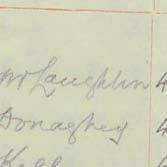 McLaughlin 4
Donaghey 4
Kell